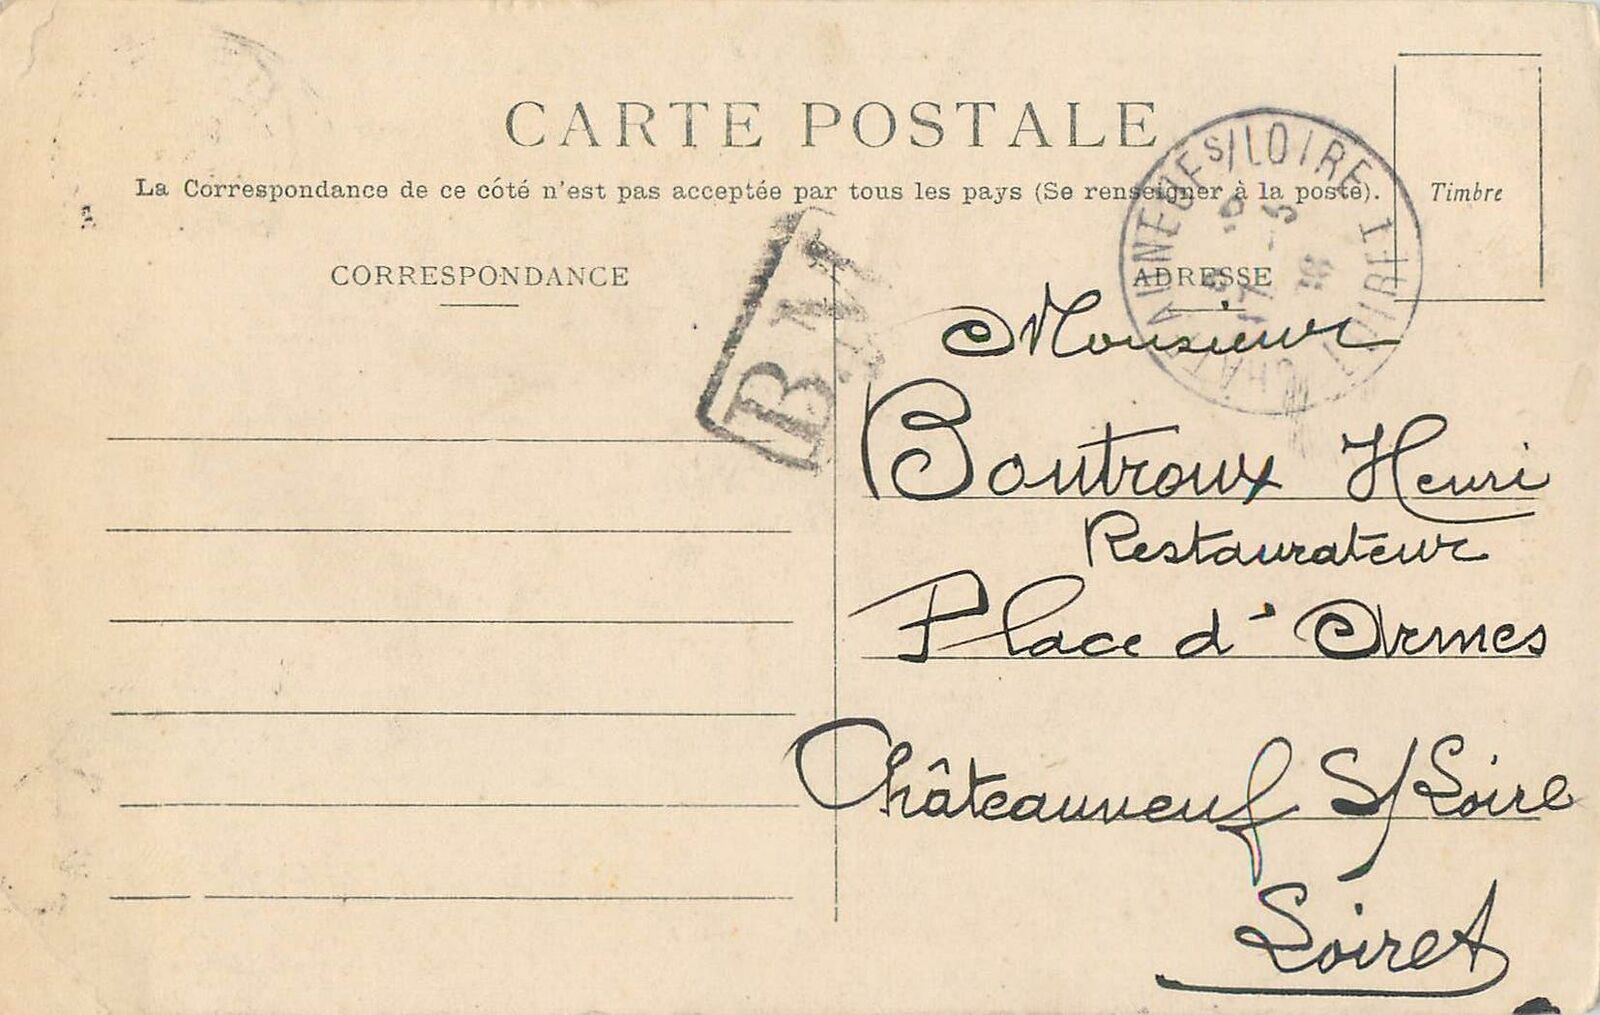 CARTE POSTALE
La Correspondance de ce côté n'est pas acceptée par tous les pays (Se renseigner à la poste).
Timbre
CORRESPONDANCE
ADRESSE
B.M
LOIRE
LOIRET
Monsieur
Boutroux Henri
Restaurateur
Place d'Armes
Châteauneuf S/Loire
Loiret